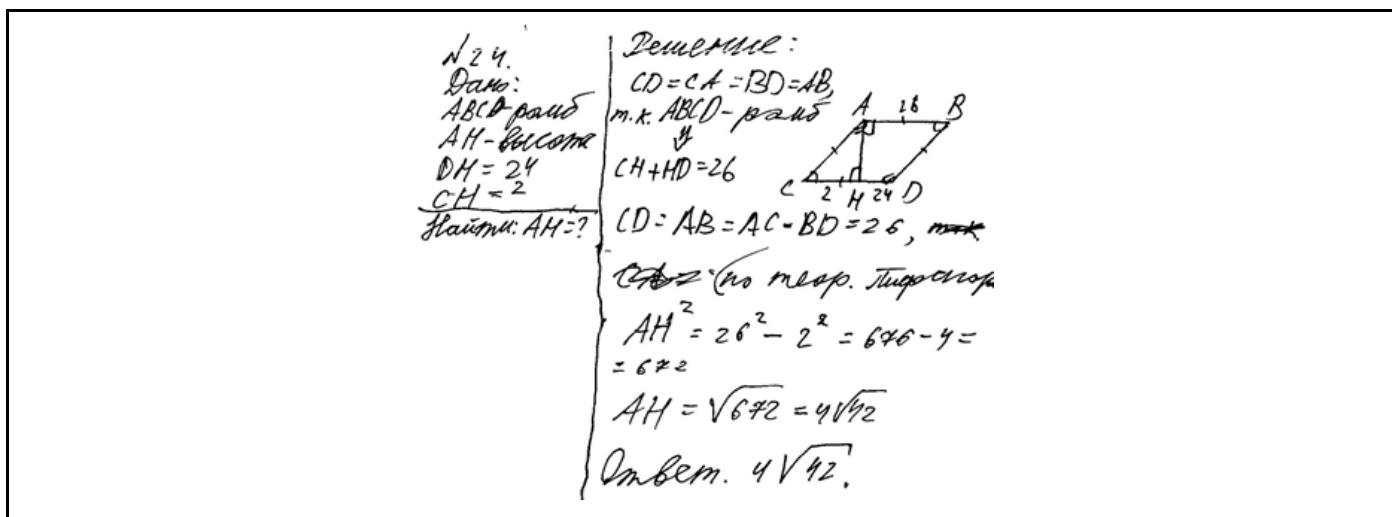 N24.
Дано:
ABCD-ромб
AH-высота
DH = 24
CH = 2
Найти: AH=?
Решение:
CD=CA=BD=AB,
т.к. ABCD-ромб
⇓
CH+HD=26
A 26 B
C 2 H 24 D
CD=AB=AC=BD=26,
(по теор. Пифагора
AH² = 26² - 2² = 676-4=
= 672
AH = √672 = 4√42
Ответ. 4√42.